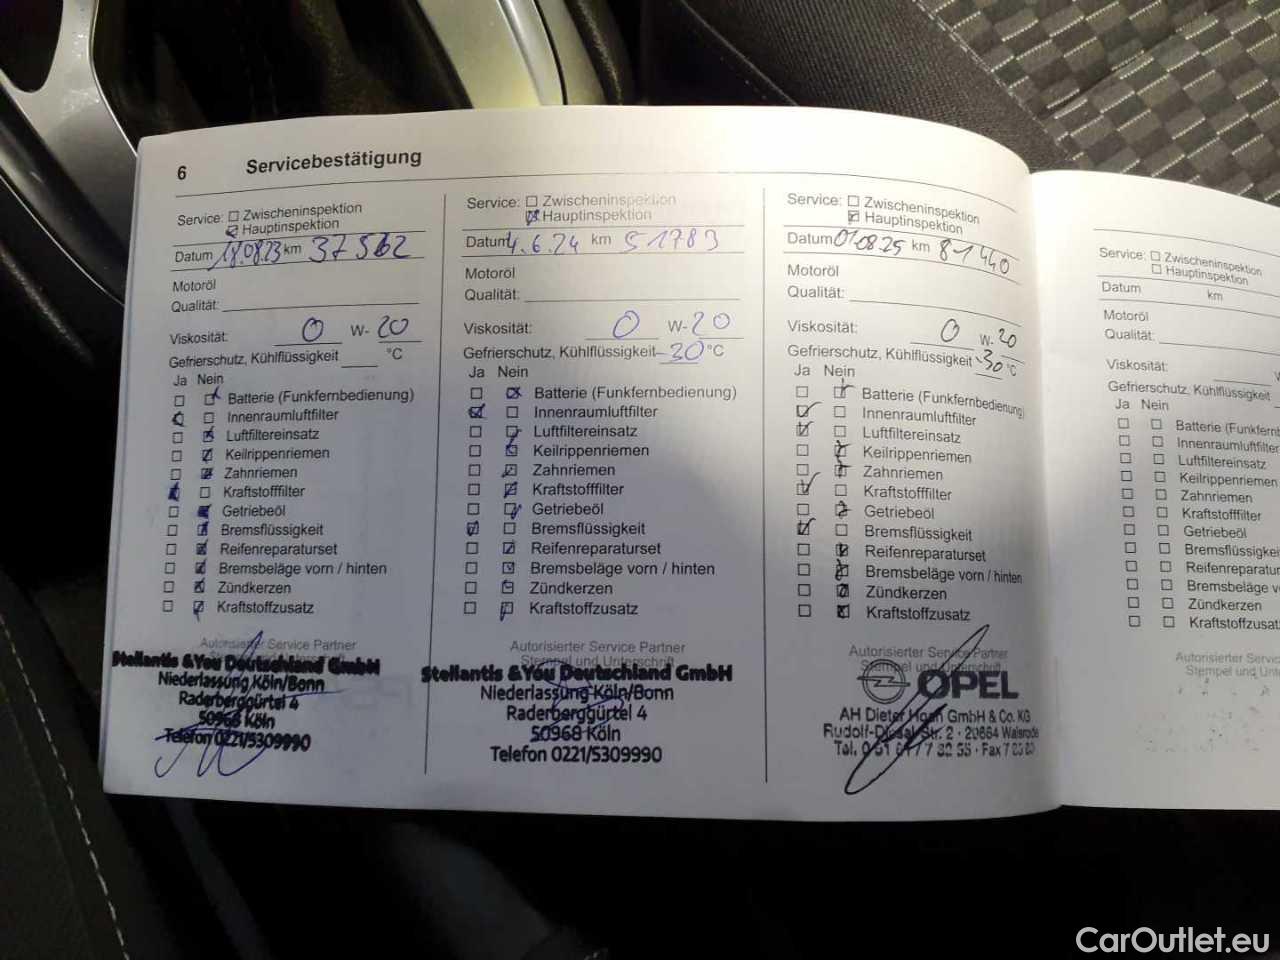 6 Servicebestätigung
Service: Zwischeninspektion
Hauptinspektion
Datum 18.08.23 km 37562
Motoröl
Qualität:
Viskosität: 0 W- 20
Gefrierschutz, Kühlflüssigkeit °C
Ja Nein
Batterie (Funkfernbedienung)
Innenraumluftfilter
Luftfiltereinsatz
Keilrippenriemen
Zahnriemen
Kraftstofffilter
Getriebeöl
Bremsflüssigkeit
Reifenreparaturset
Bremsbeläge vorn / hinten
Zündkerzen
Kraftstoffzusatz
Autorisierter Service Partner
Stellantis &You Deutschland GmbH
Niederlassung Köln/Bonn
Raderberggürtel 4
50968 Köln
Telefon 0221/5309990
Service: Zwischeninspektion
Hauptinspektion
Datum 4.6.24 km 51783
Motoröl
Qualität:
Viskosität: 0 W- 20
Gefrierschutz, Kühlflüssigkeit -30 °C
Ja Nein
Batterie (Funkfernbedienung)
Innenraumluftfilter
Luftfiltereinsatz
Keilrippenriemen
Zahnriemen
Kraftstofffilter
Getriebeöl
Bremsflüssigkeit
Reifenreparaturset
Bremsbeläge vorn / hinten
Zündkerzen
Kraftstoffzusatz
Autorisierter Service Partner
Stempel und Unterschrift
Stellantis &You Deutschland GmbH
Niederlassung Köln/Bonn
Raderberggürtel 4
50968 Köln
Telefon 0221/5309990
Service: Zwischeninspektion
Hauptinspektion
Datum 01.08.25 km 81440
Motoröl
Qualität:
Viskosität: 0 W- 20
Gefrierschutz, Kühlflüssigkeit -30 °C
Ja Nein
Batterie (Funkfernbedienung)
Innenraumluftfilter
Luftfiltereinsatz
Keilrippenriemen
Zahnriemen
Kraftstofffilter
Getriebeöl
Bremsflüssigkeit
Reifenreparaturset
Bremsbeläge vorn / hinten
Zündkerzen
Kraftstoffzusatz
Autorisierter Service Partner
Stempel und Unterschrift
OPEL
AH Dieter GmbH & Co. KG
Rudolf-Diesel-Str. 2 - 29664 Walsrode
Service: Zwischeninspektion
Hauptinspektion
Datum km
Motoröl
Qualität:
Viskosität:
Gefrierschutz, Kühlflüssigkeit
Ja Nein
Batterie (Funkfernb
Innenraumluftfilter
Luftfiltereinsatz
Keilrippenriemen
Zahnriemen
Kraftstofffilter
Getriebeöl
Bremsflüssigkei
Reifenreparatur
Bremsbeläge v
Zündkerzen
Kraftstoffzusat
Autorisierter Servic
Stempel und Unt
CarOutlet.eu